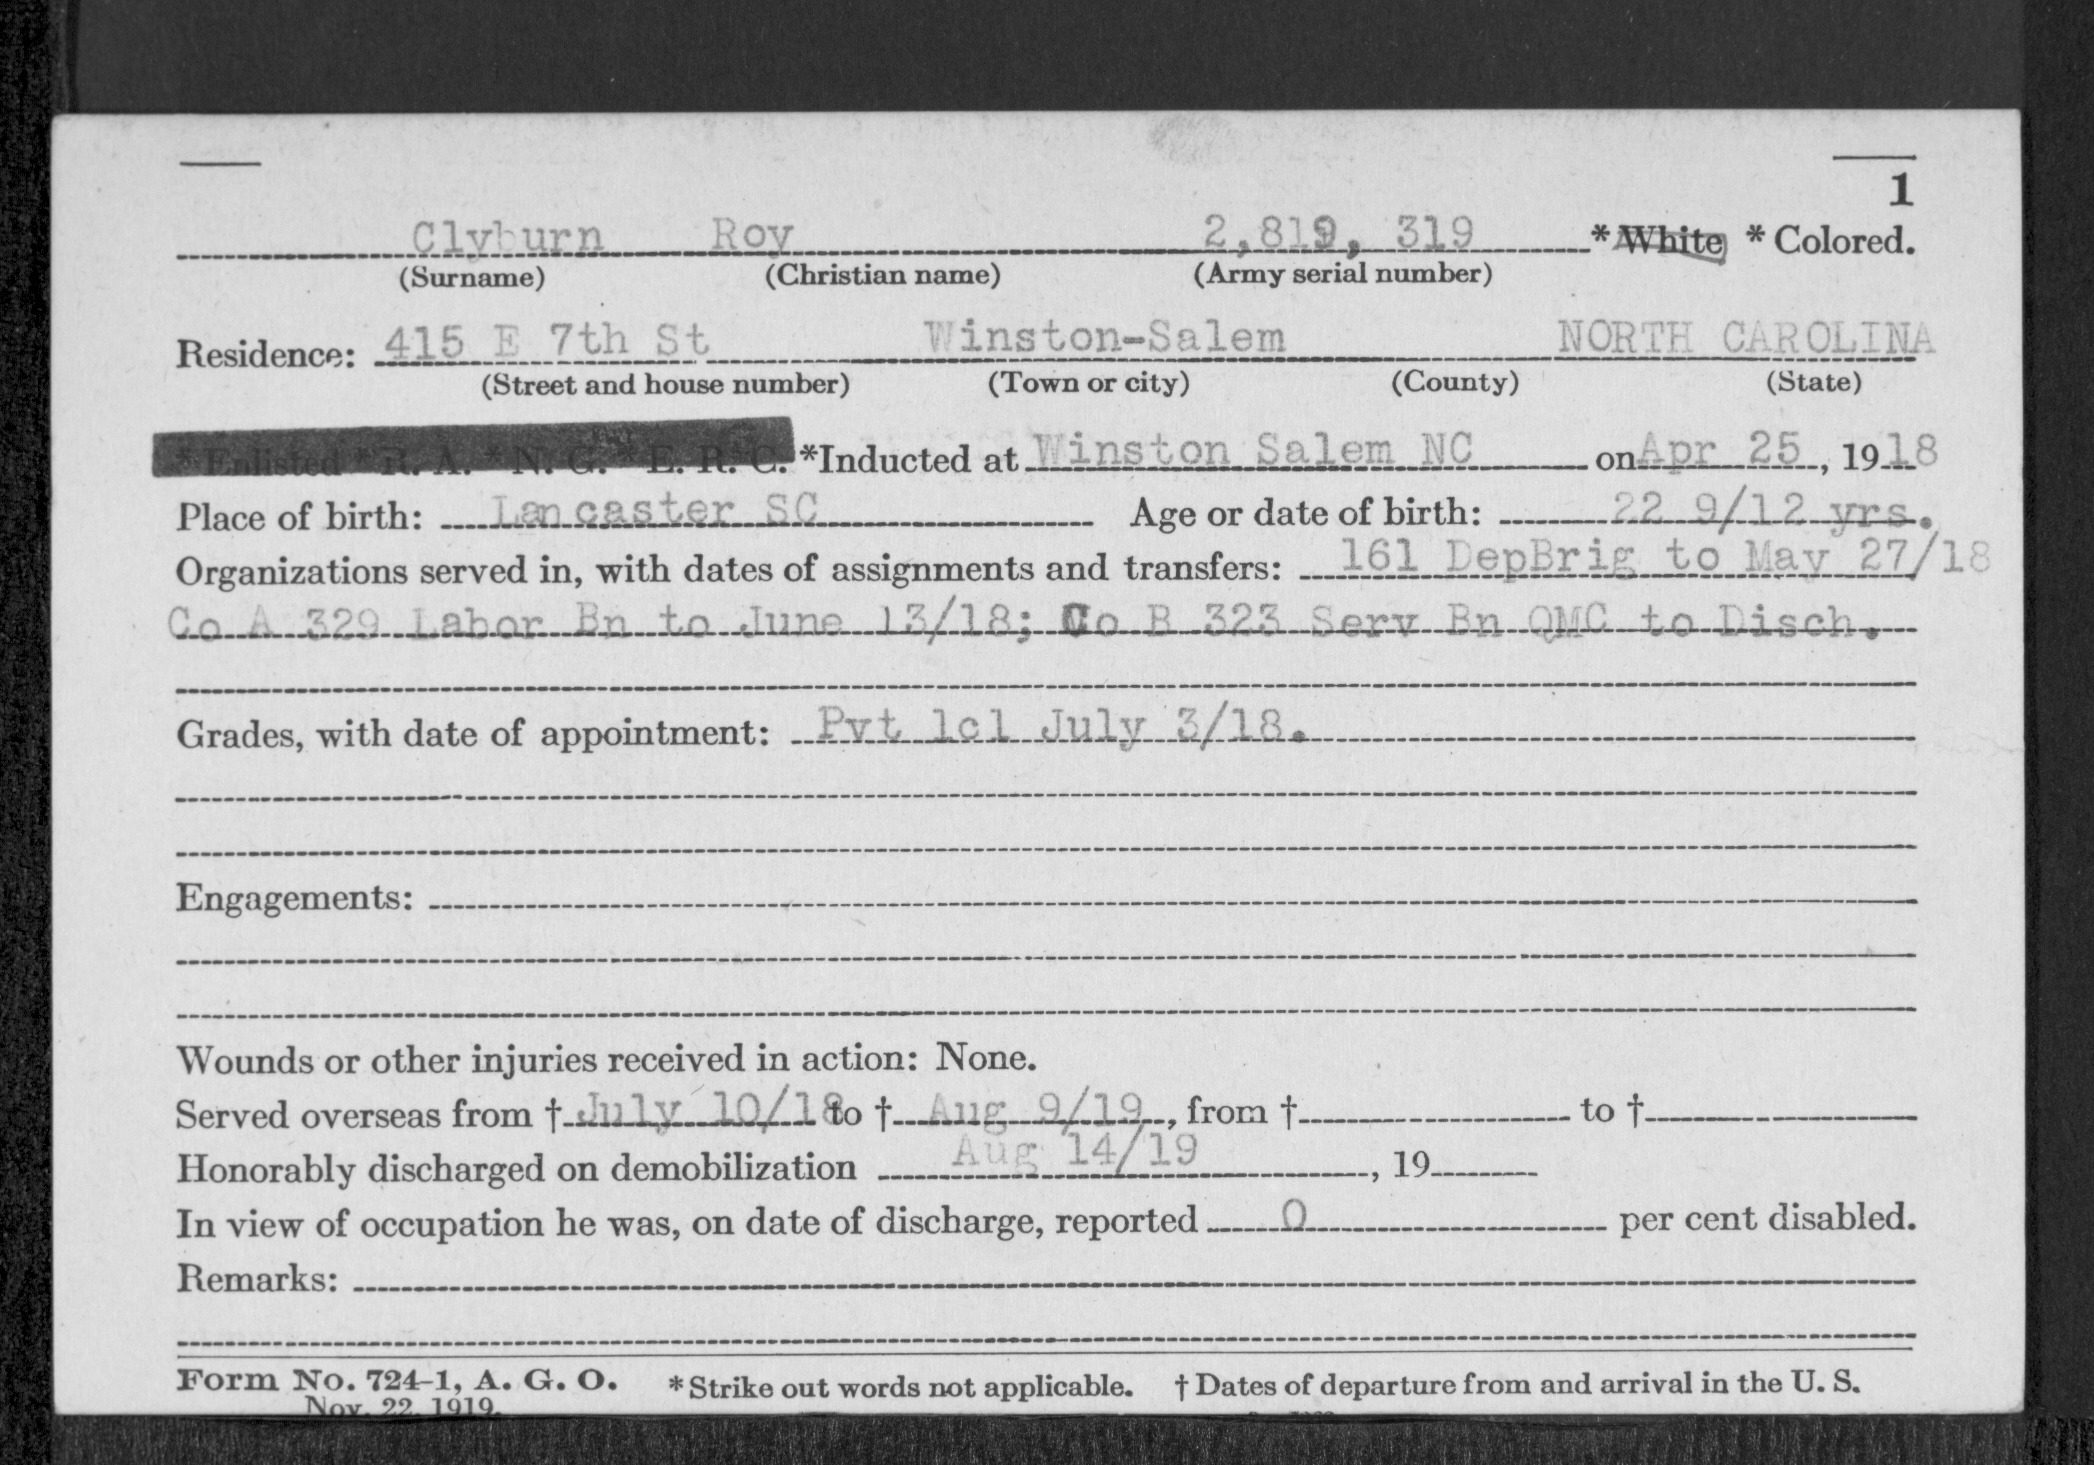 1
Clyburn Roy 2,819, 319 *White *Colored.
(Surname) (Christian name) (Army serial number)
Residence: 415 E 7th St Winston-Salem NORTH CAROLINA
(Street and house number) (Town or city) (County) (State)
* Enlisted * R. A. * N. G. * E. R. C. *Inducted at Winston Salem NC on Apr 25, 1918
Place of birth: Lancaster SC Age or date of birth: 22 9/12 yrs.
Organizations served in, with dates of assignments and transfers: 161 DepBrig to May 27/18
Co A 329 Labor Bn to June 13/18; Co B 323 Serv Bn QMC to Disch.
Grades, with date of appointment: Pvt 1cl July 3/18.
Engagements:
Wounds or other injuries received in action: None.
Served overseas from † July 10/18 to † Aug 9/19, from † to †
Honorably discharged on demobilization Aug 14/19, 19
In view of occupation he was, on date of discharge, reported 0 per cent disabled.
Remarks:
Form No. 724-1, A. G. O. *Strike out words not applicable. † Dates of departure from and arrival in the U. S.
Nov. 22, 1919.